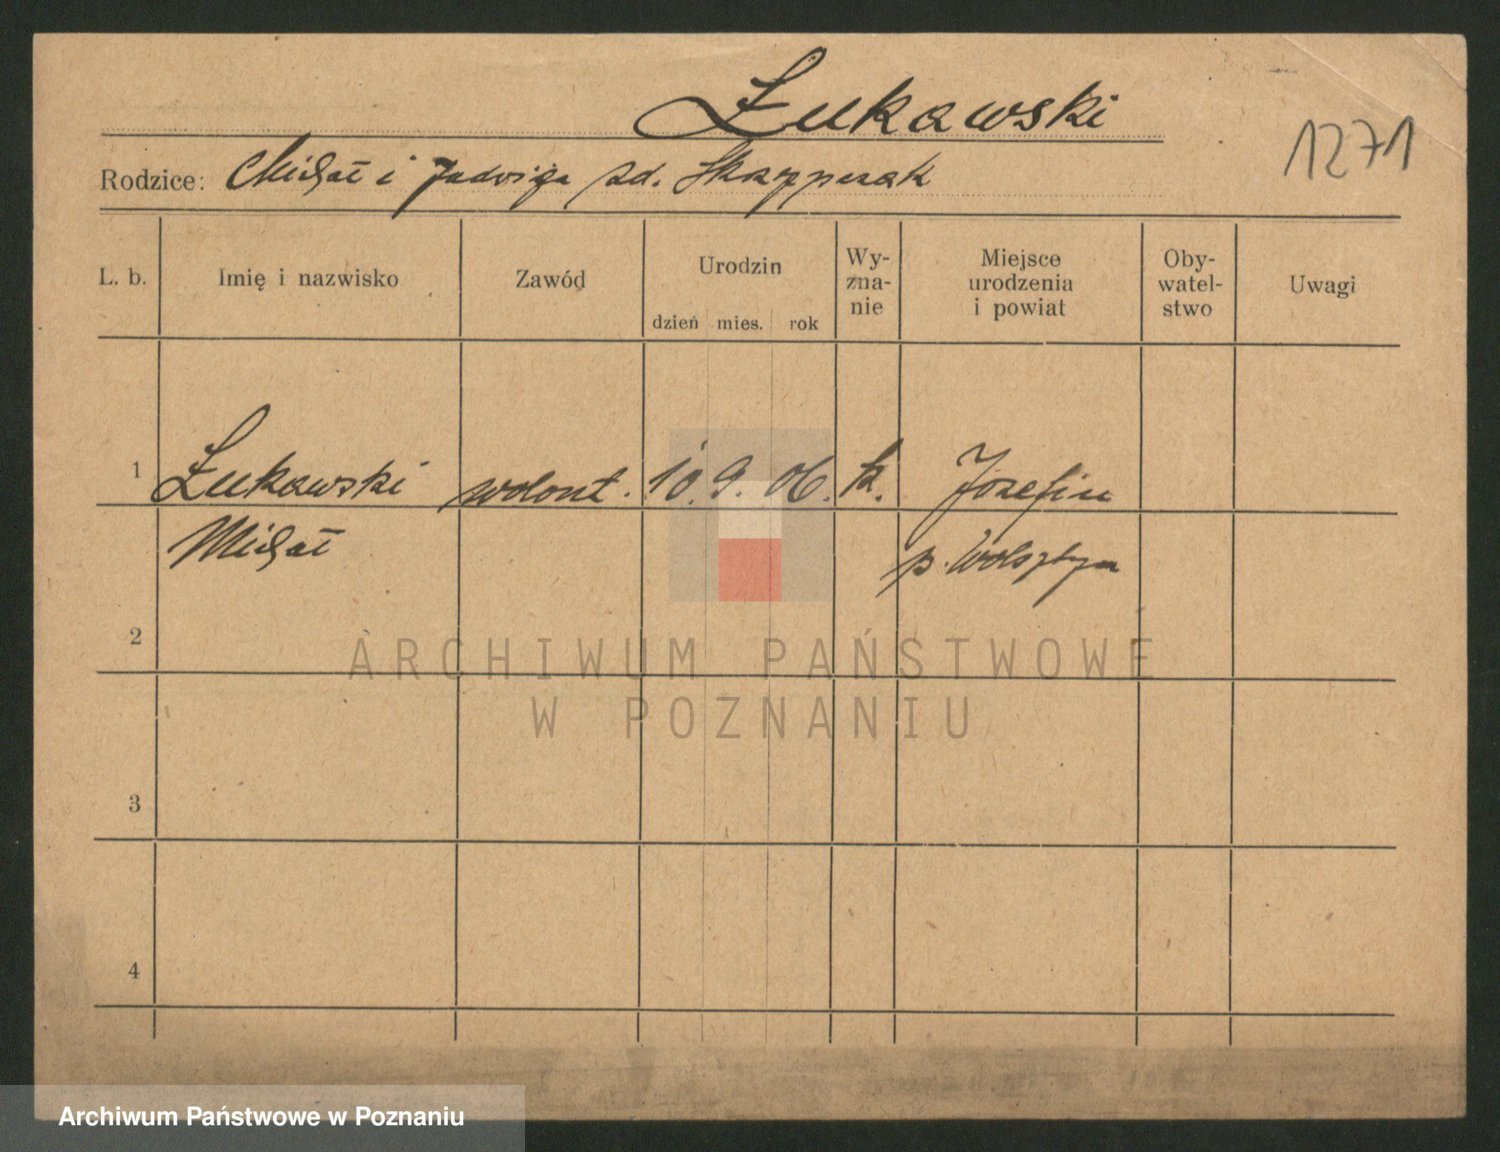 Łukawski
1271
Rodzice: Michał i Jadwiga zd.
L. b. Imię i nazwisko Zawód Urodzin dzień mies. rok Wy-zna-nie Miejsce urodzenia i powiat Oby-watel-stwo Uwagi
1 Łukawski wolont. 10. 9. 06. k. Józefin
Michał p. Wolsztyn
2
ARCHIWUM PAŃSTWOWE
W POZNANIU
3
4
Archiwum Państwowe w Poznaniu